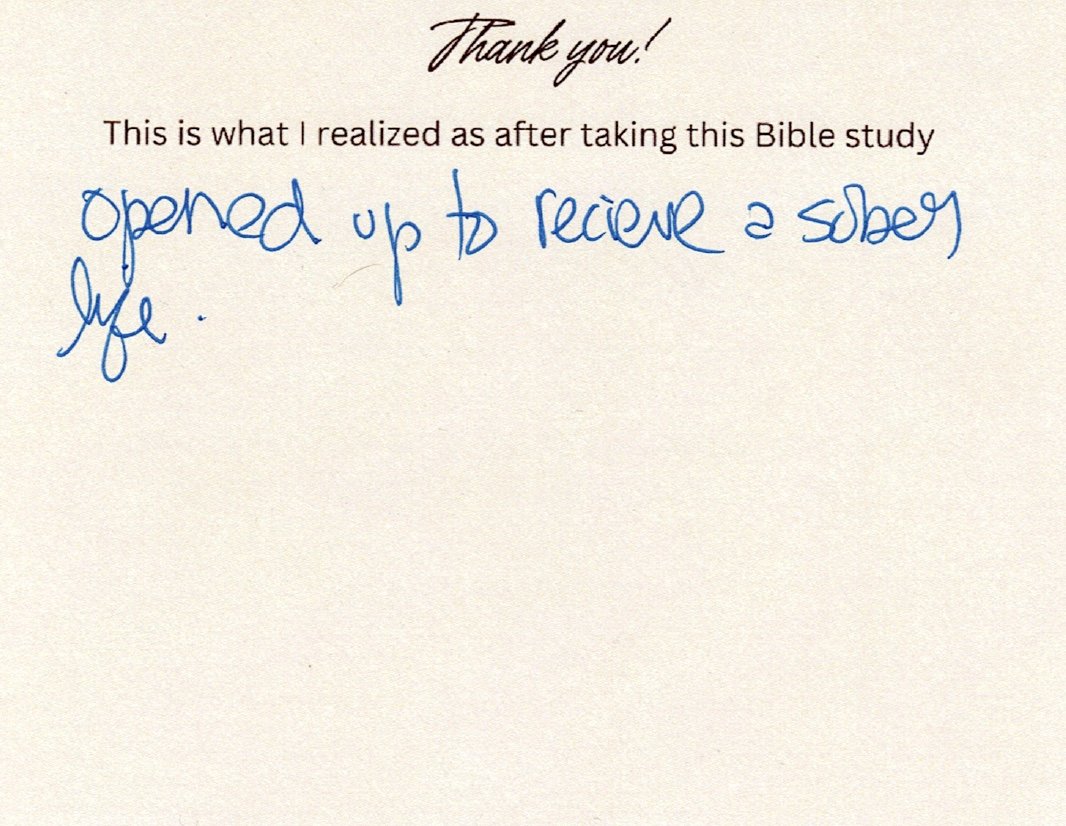 Thank you!
This is what I realized as after taking this Bible study
opened up to recieve a sober
life.